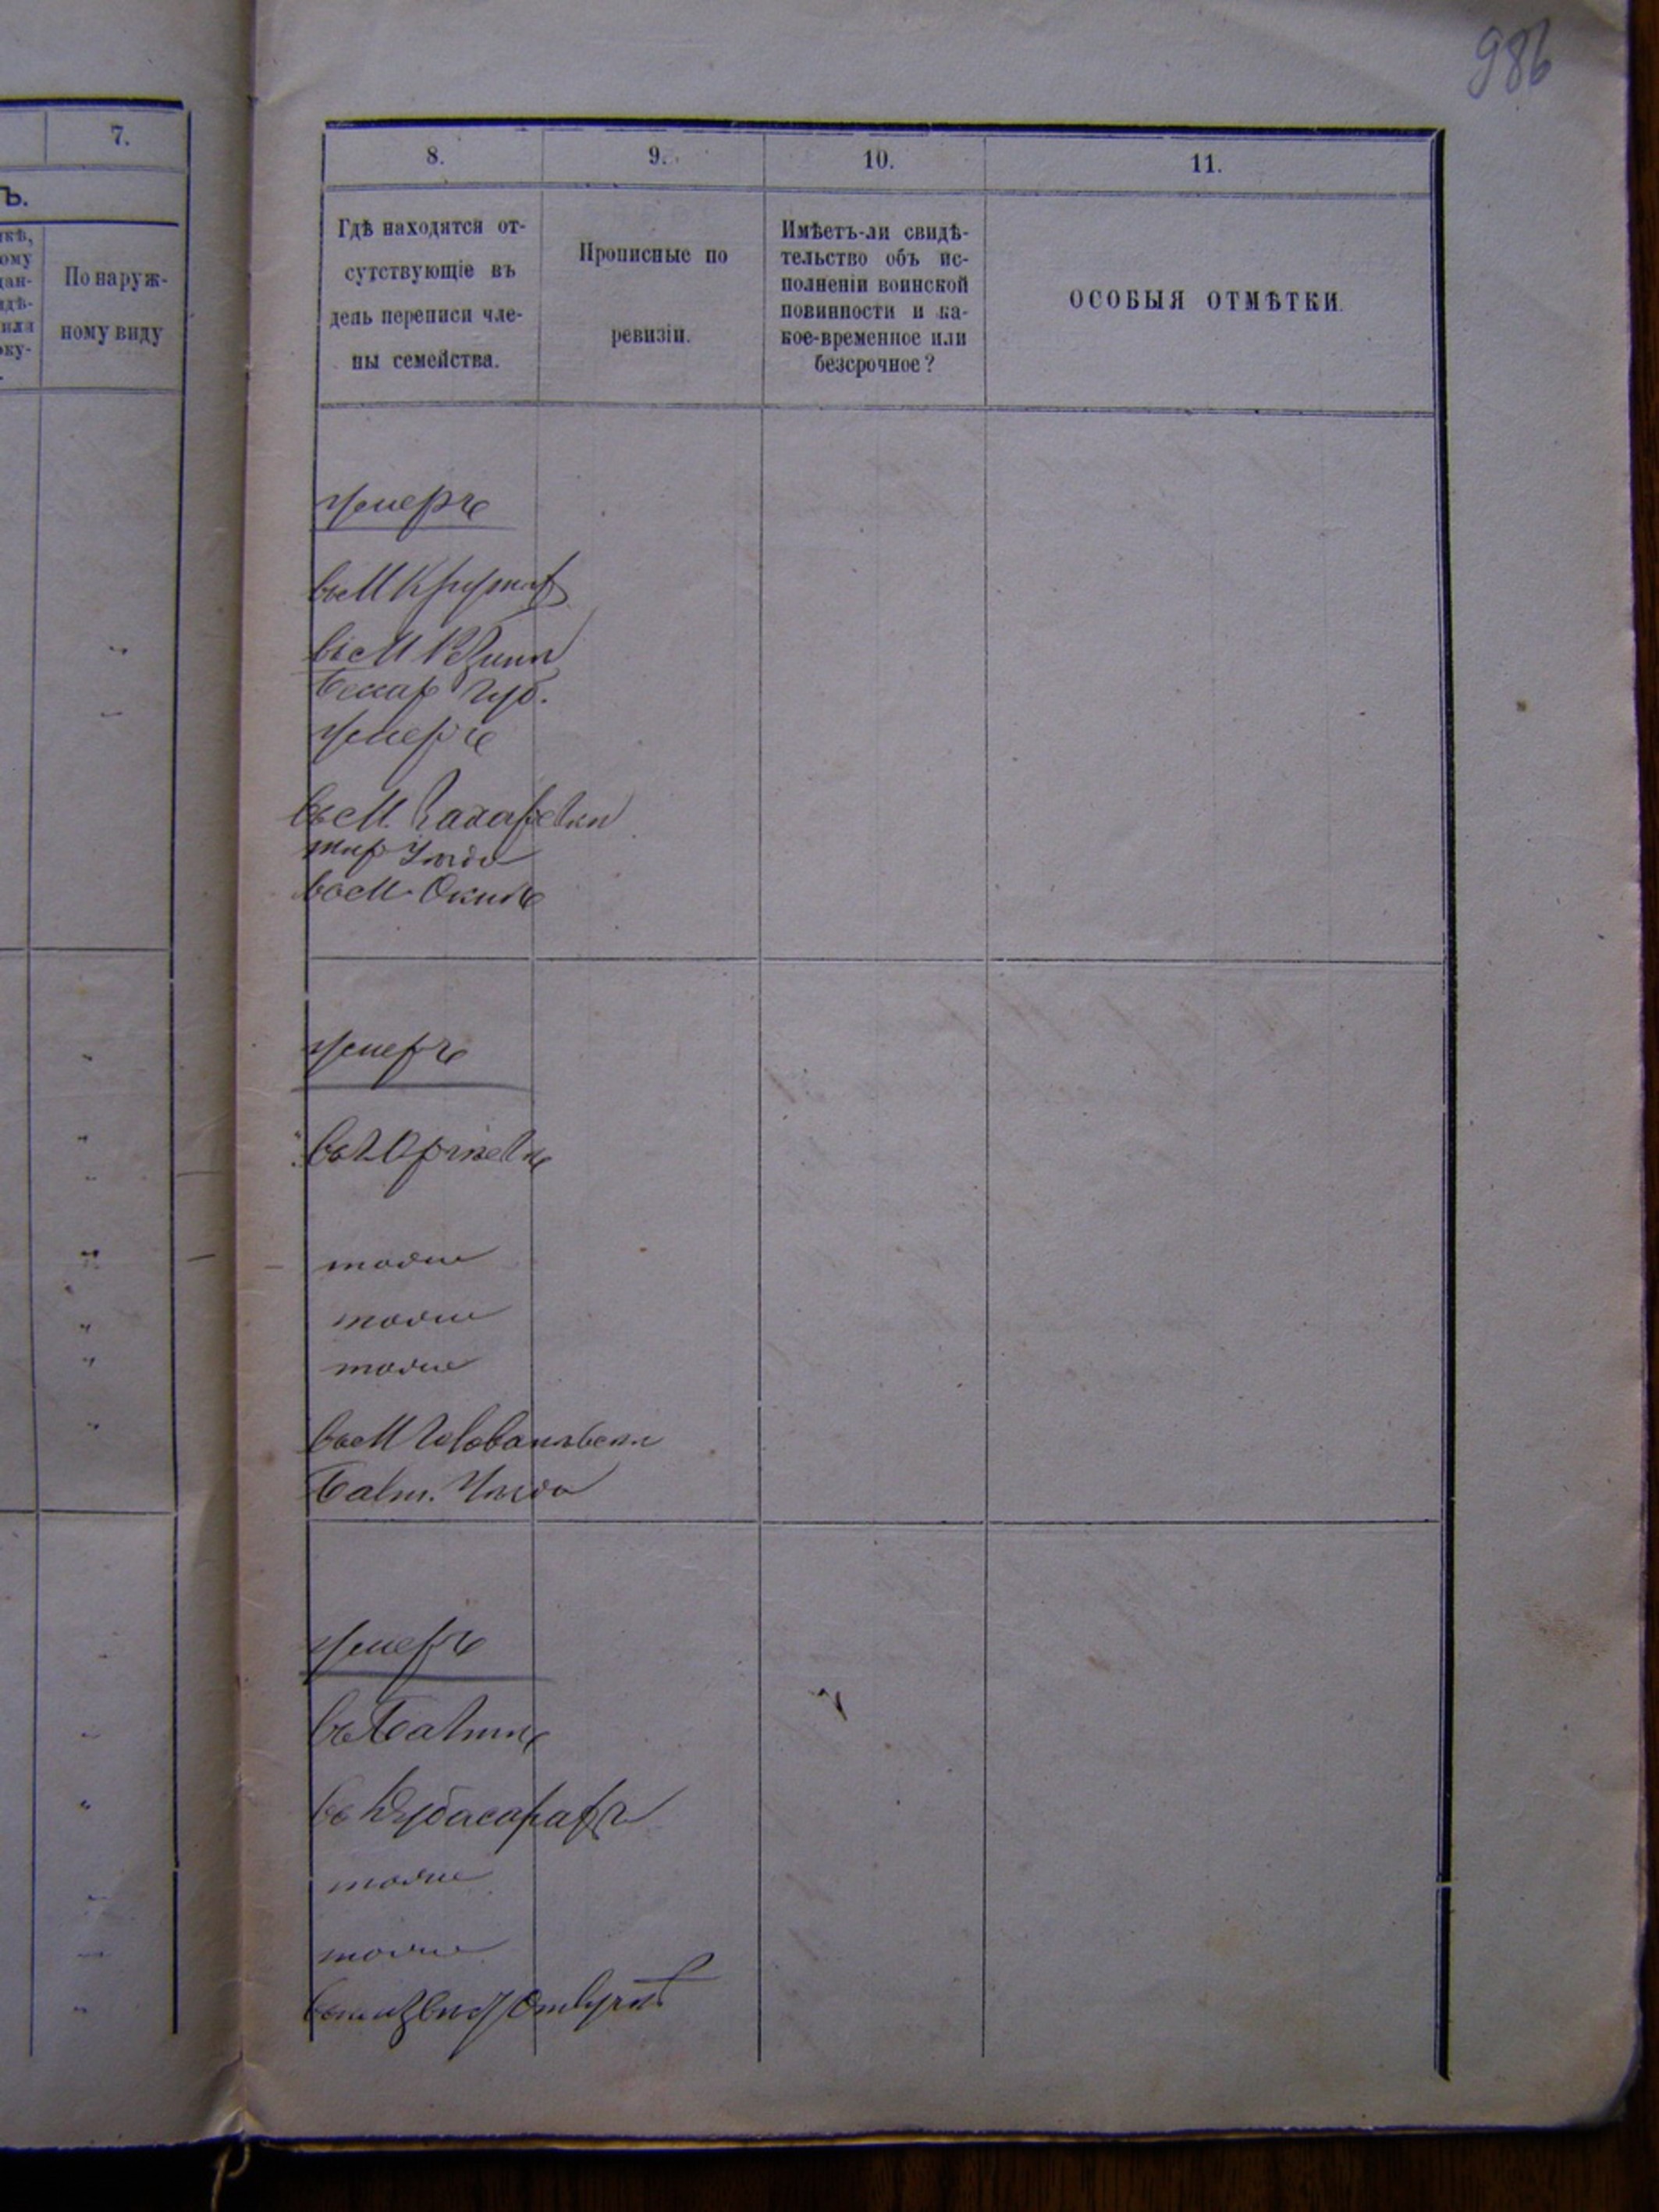 986
7.
Ъ.
По наруж-
ному виду
8.
9.
10.
11.
Гдѣ находятся от-
сутствующіе въ
день переписи чле-
ны семейства.
Прописные по
ревизіи.
Имѣетъ-ли свидѣ-
тельство объ ис-
полненіи воинской
повинности и ка-
кое-временное или
безсрочное?
ОСОБЫЯ ОТМѢТКИ.
умеръ
въ М
въ М
Бессар губ.
умеръ
въ М. Захаревки
тир уѣзда
въ М. Окнѣ
умеръ
въ Оргѣевѣ
тоже
тоже
тоже
въ М Голованевски
Балт. уѣзда
умеръ
въ Балтѣ
въ Дубасарахъ
тоже
тоже